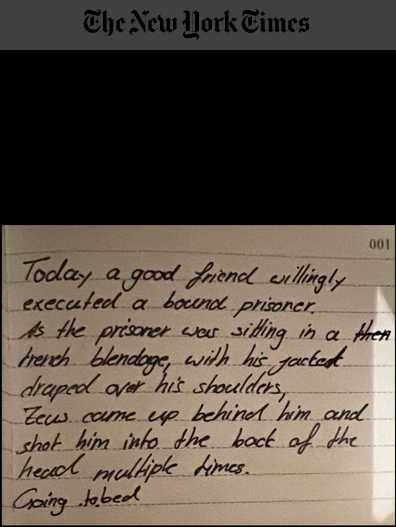 The New York Times
001
Today a good friend willingly
executed a bound prisoner.
As the prisoner was sitting in a then
trench blendage, with his jacket
draped over his shoulders,
Zeus came up behind him and
shot him into the back of the
head multiple times.
Going to bed